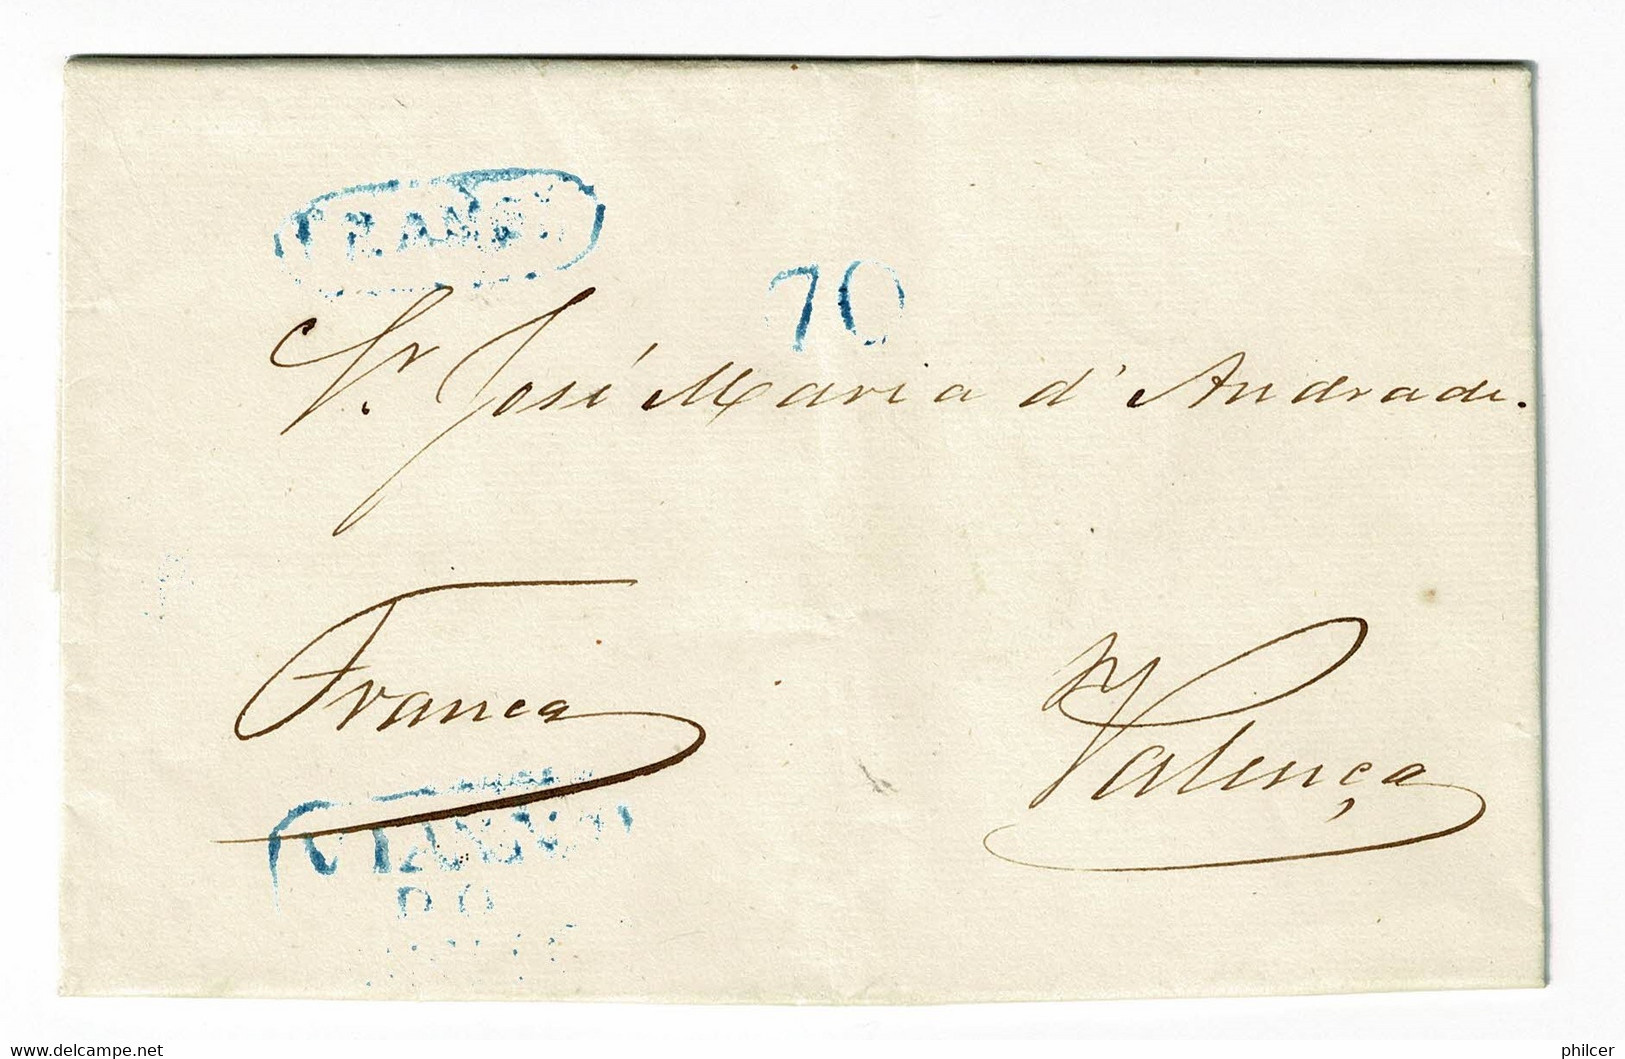 FRANCA
70
Sr. José Maria d'Andrade.
Franca
Valença
VIANNA
DO
www.delcampe.net
philcer